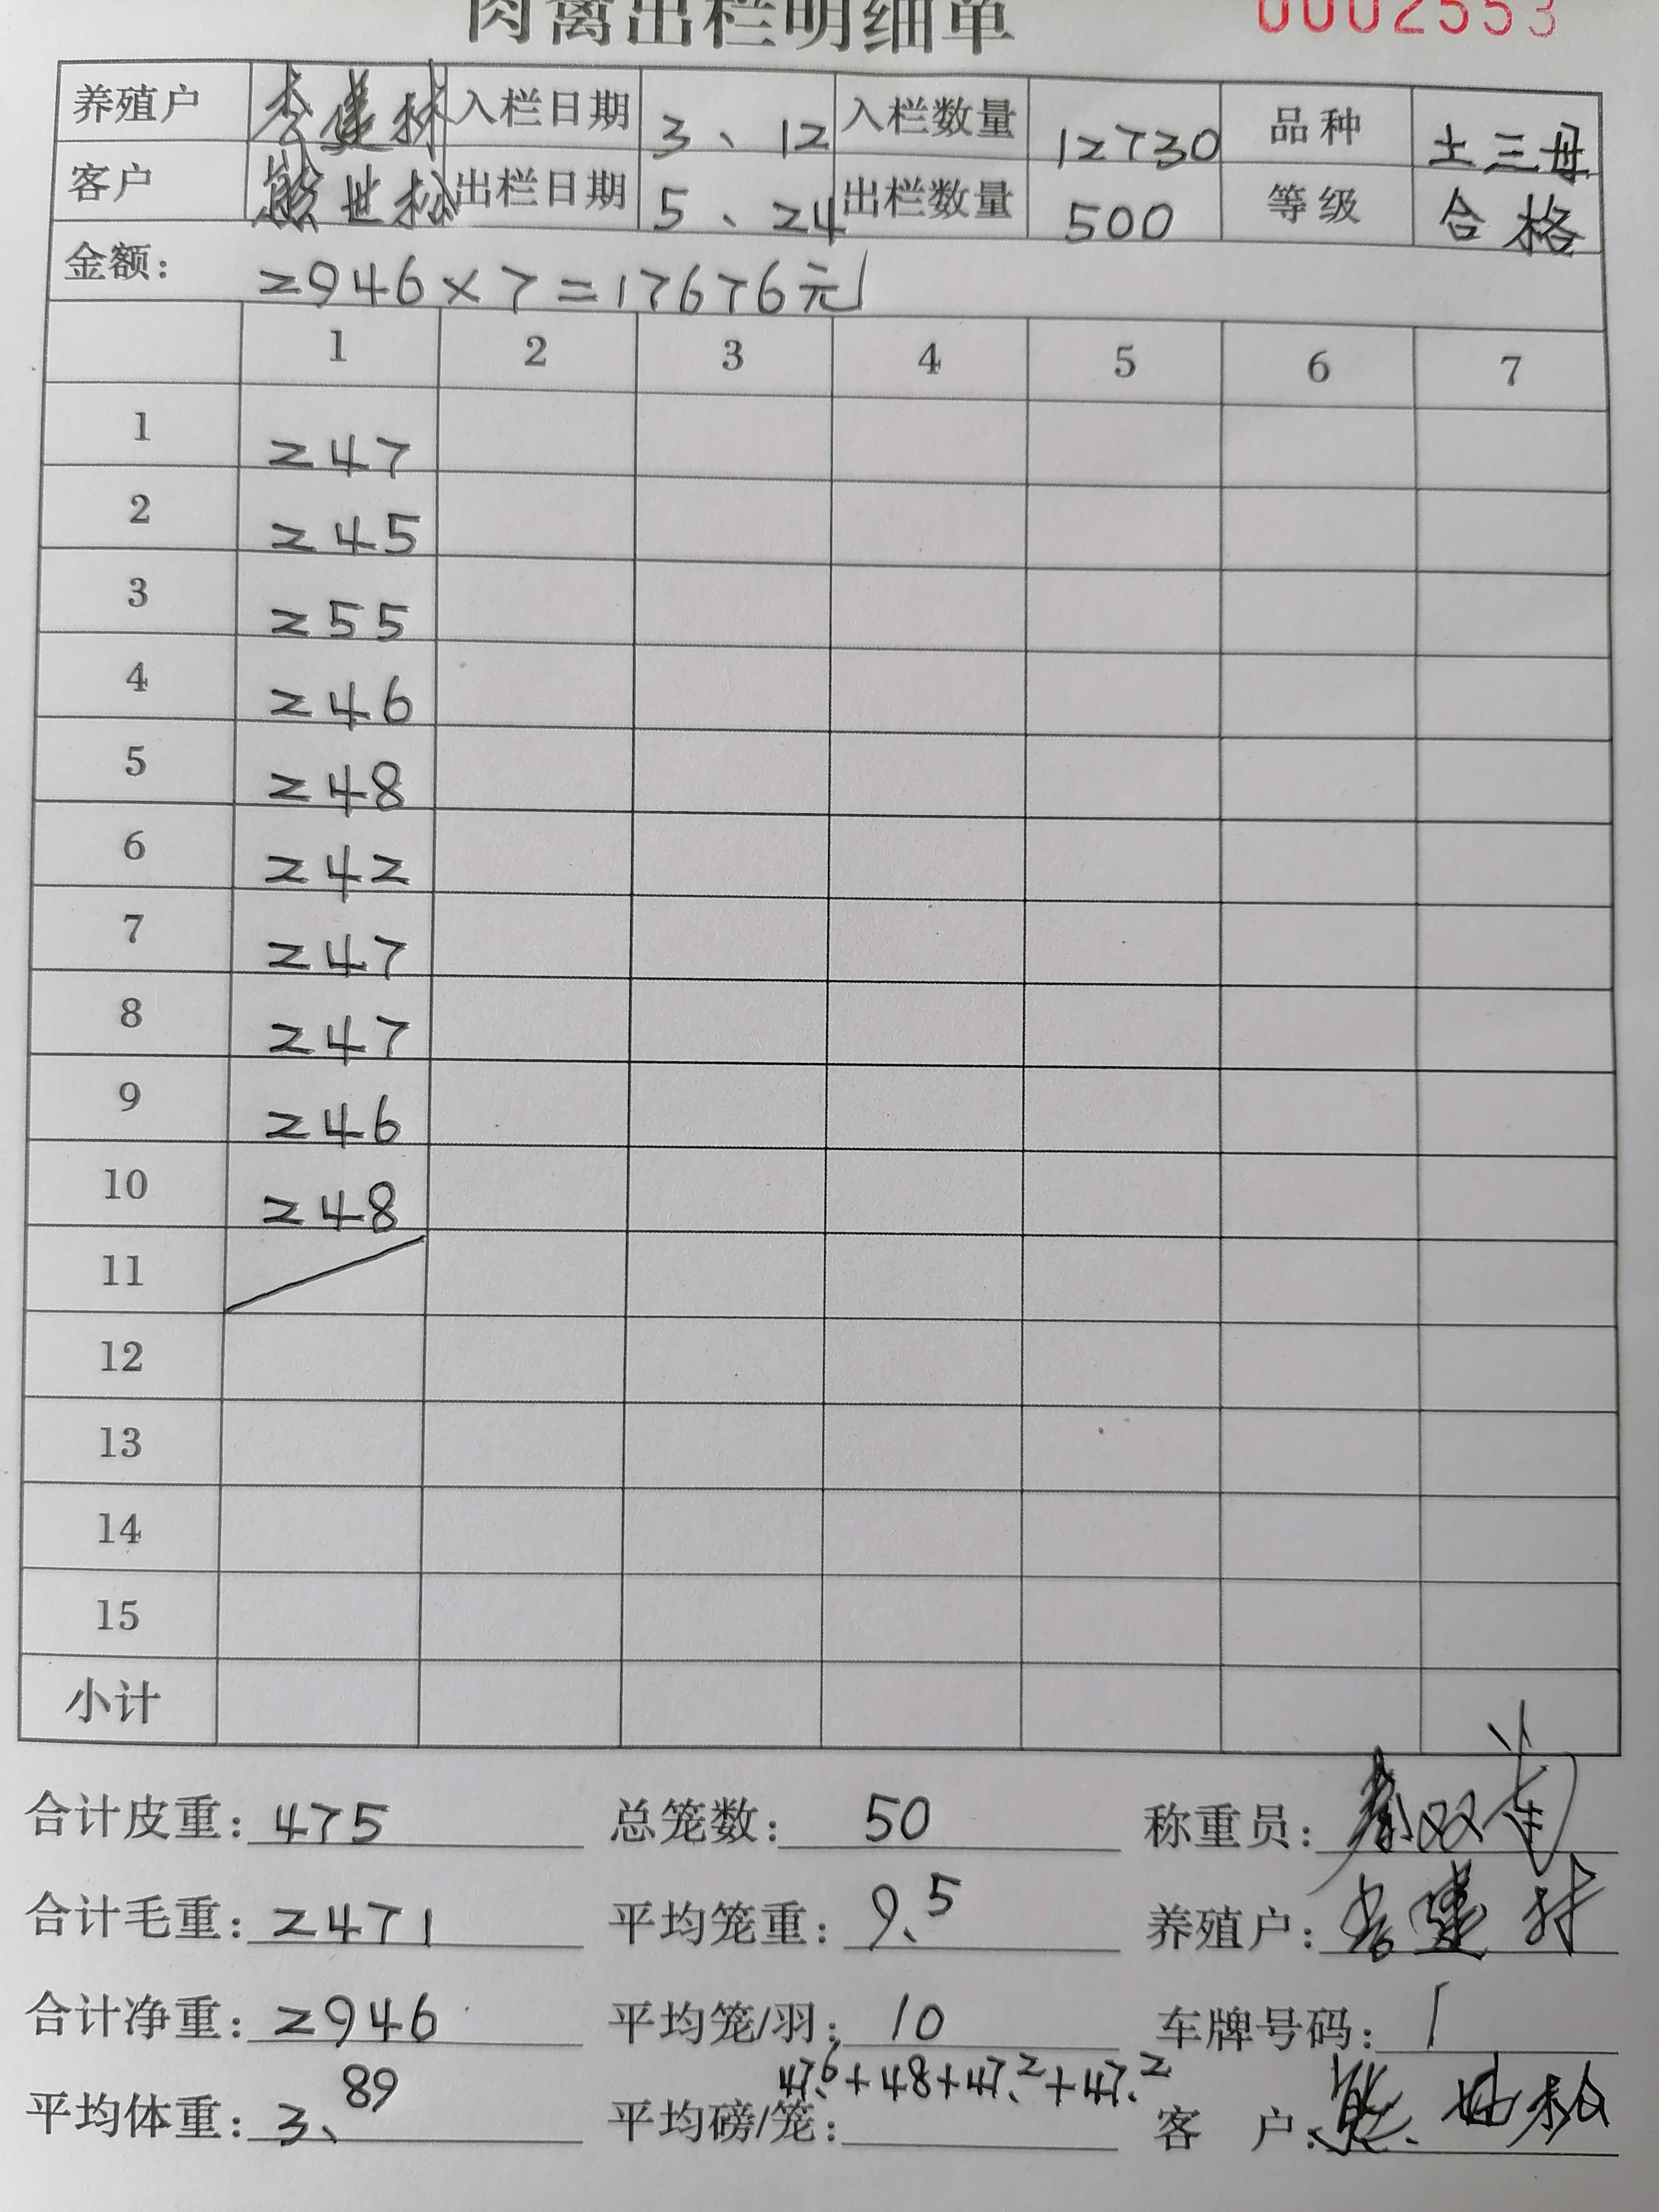 肉禽出栏明细单 0002553
养殖户 李建林 入栏日期 3、12 入栏数量 12730 品种 土三母
客户 熊世松 出栏日期 5、24 出栏数量 500 等级 合格
金额： 2946×7=17676元
1 2 3 4 5 6 7
1 247
2 245
3 255
4 246
5 248
6 242
7 247
8 247
9 246
10 248
11
12
13
14
15
小计
合计皮重： 475 总笼数： 50 称重员：
合计毛重： 2471 平均笼重： 9、5 养殖户： 李建林
合计净重： 2946 平均笼/羽： 10 车牌号码： 1
47.6+48+47.2+47.2
平均体重： 3、89 平均磅/笼： 客 户： 熊世松